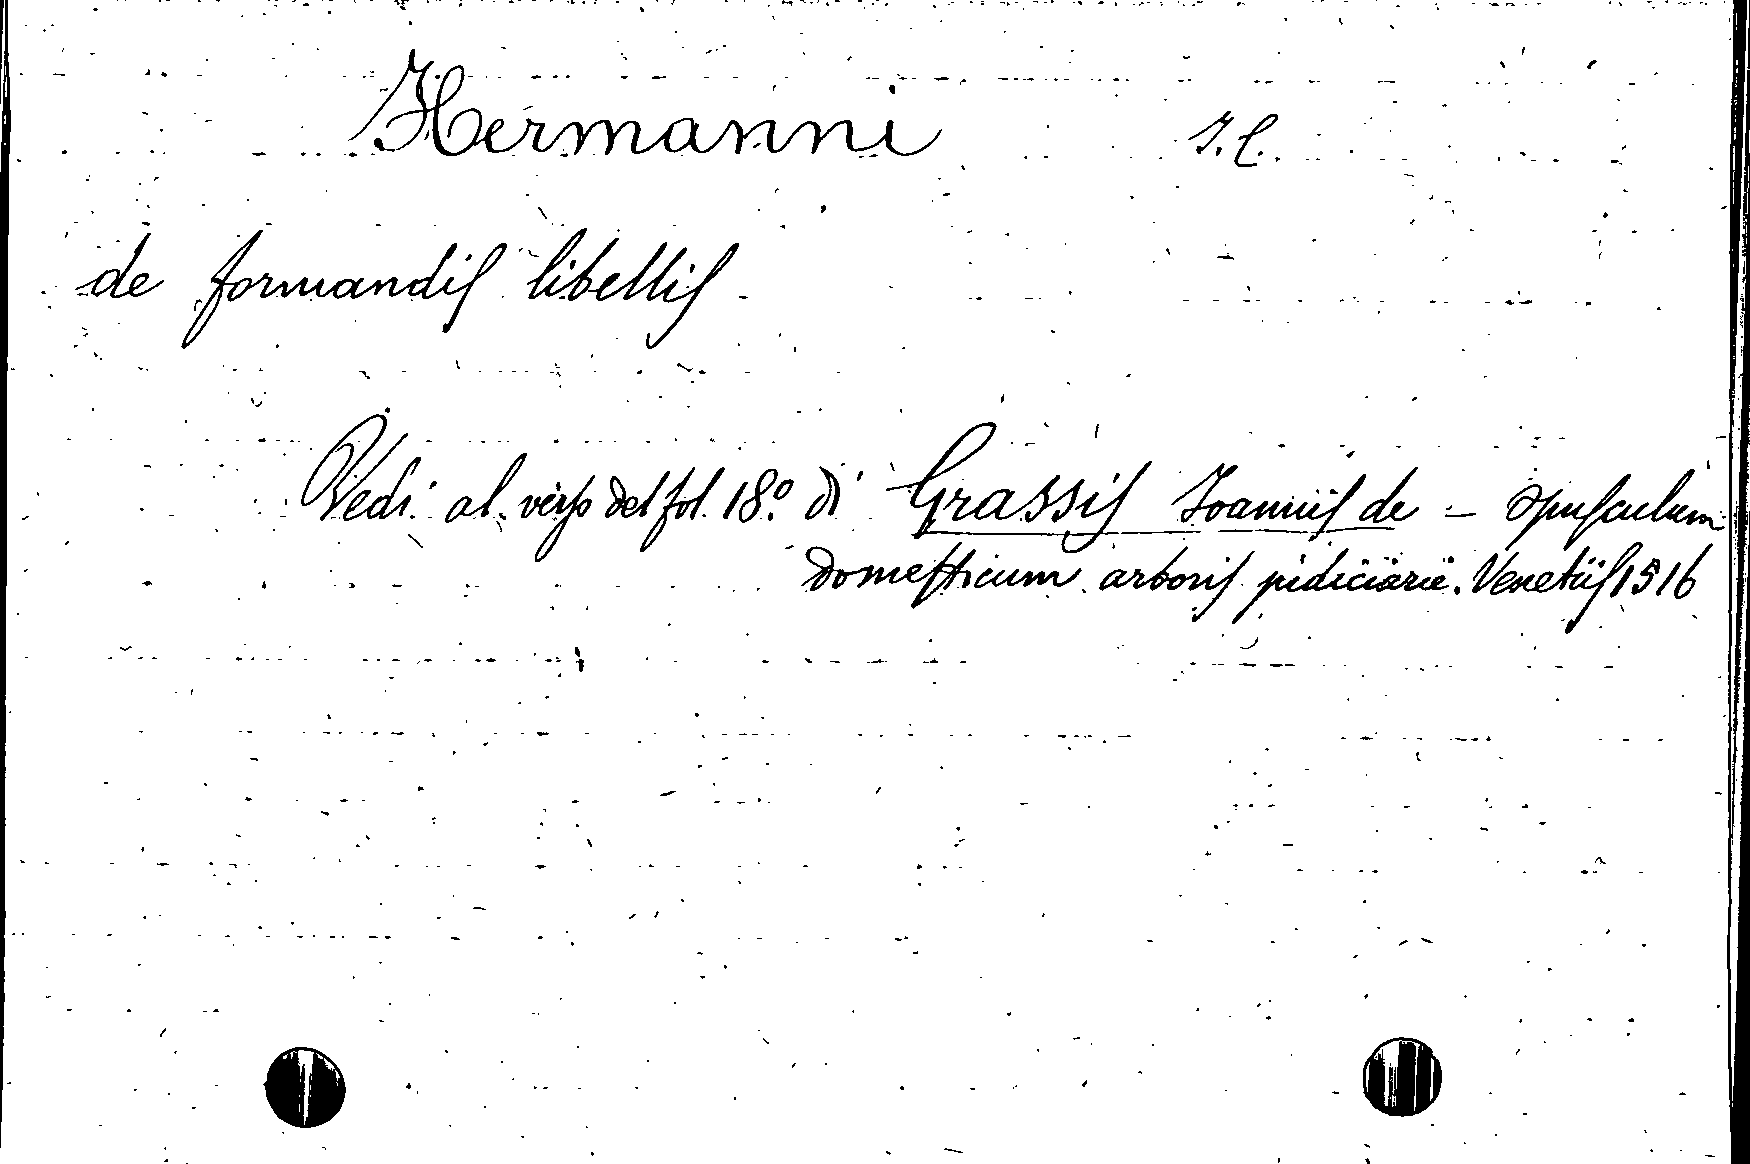 Hermanni J. C.
de formandis libellis
Vedi al verso del fol. 18º di Grassis Joannis de - opusculum
domesticum arboris judiciarie. Venetiis 1516